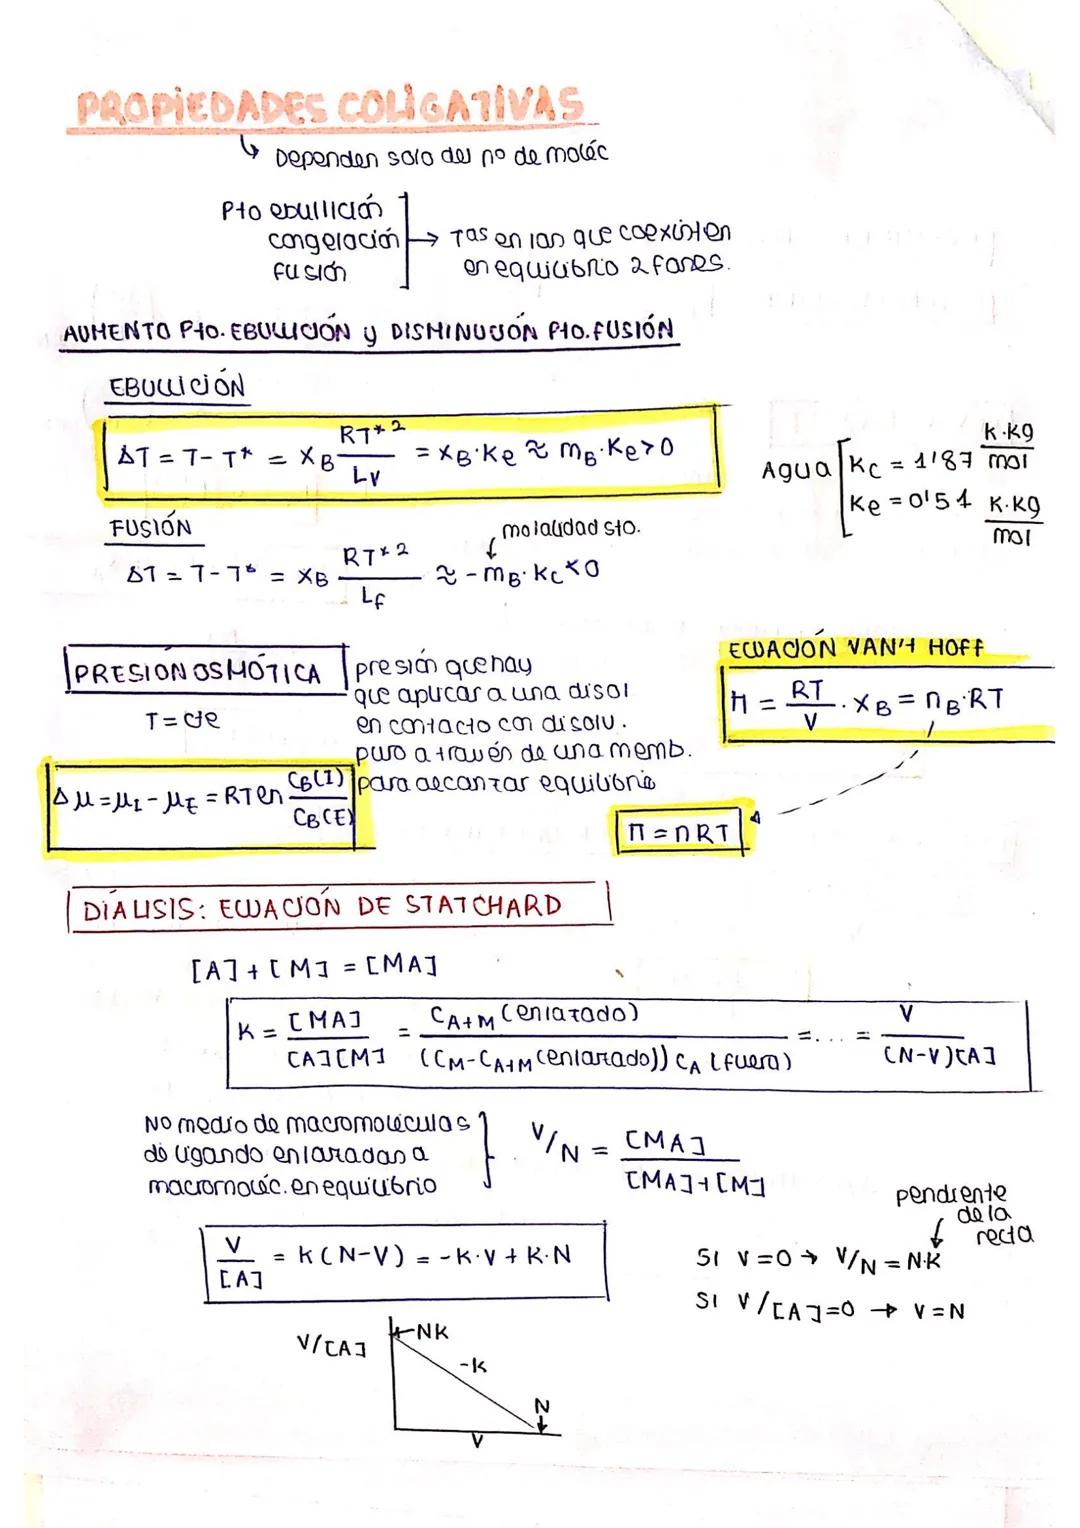 PROPIEDADES COLIGATIVAS
↳ Dependen solo del nº de moléc
Pto ebullición
congelación → Tas en las que coexisten
fusión en equilibrio 2 fases.
AUMENTO Pto. EBULLICIÓN y DISMINUCIÓN Pto. FUSIÓN
EBULLICIÓN
ΔT = T - T* = XB RT*2 / Lv = XB·Ke ≈ mB·Ke > 0
Agua [ Kc = 1'87 K·kg / mol
Ke = 0'51 K·kg / mol
FUSIÓN
molalidad sto.
ΔT = T - T* = XB RT*2 / Lf ≈ - mB·Kc < 0
PRESIÓN OSMÓTICA
T = cte
presión que hay
que aplicar a una disol
en contacto con disolv.
puro a través de una memb.
para alcanzar equilibrio
ECUACIÓN VAN't HOFF
Π = RT / V · XB = nB·RT
Δμ = μI - μE = RT ln CB(I) / CB(E)
Π = nRT
DIÁLISIS: ECUACIÓN DE STATCHARD
[A] + [M] = [MA]
K = [MA] / [A][M] = CA+M (enlazado) / (CM - CA+M (enlazado)) CA (fuera) = ... = V / (N-V)[A]
Nº medio de macromoléculas
de ligando enlazadas a
macromoléc. en equilibrio
V/N = [MA] / [MA]+[M]
V / [A] = K(N-V) = -K·V + K·N
pendiente
de la
recta
SI V=0 → V/N = N·K
SI V/[A]=0 → V=N
V/[A]
←NK
-K
N
V